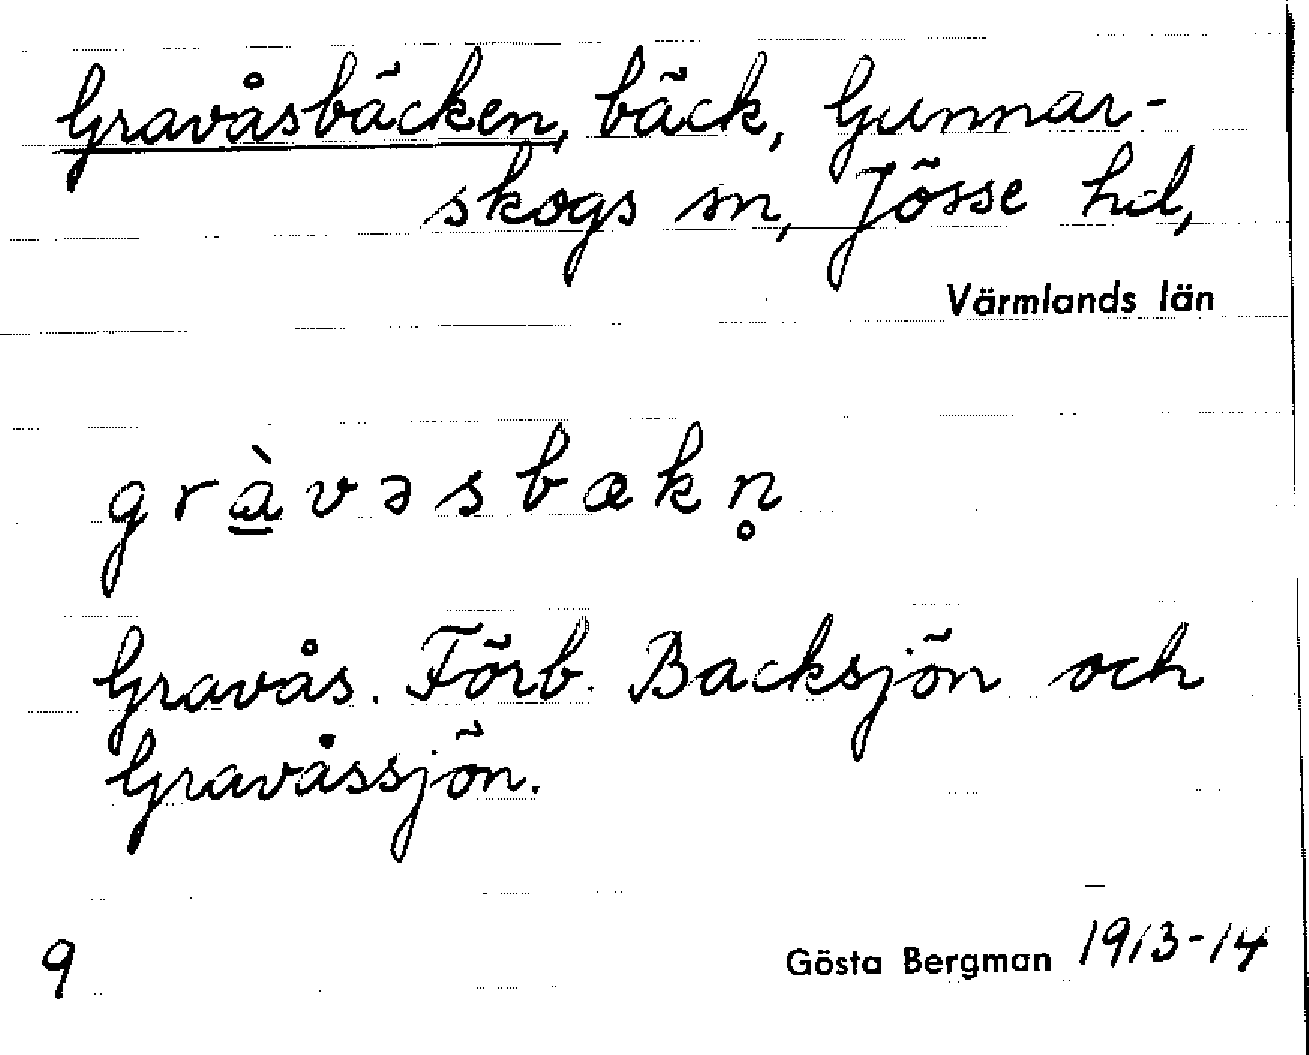 Gravåsbäcken, bäck, Gunnar-
skogs sn, Jösse hd,
Värmlands län
gràvəsbækn̥
Gravås. Förb. Backsjön och
Gravåssjön.
9
Gösta Bergman 1913-14